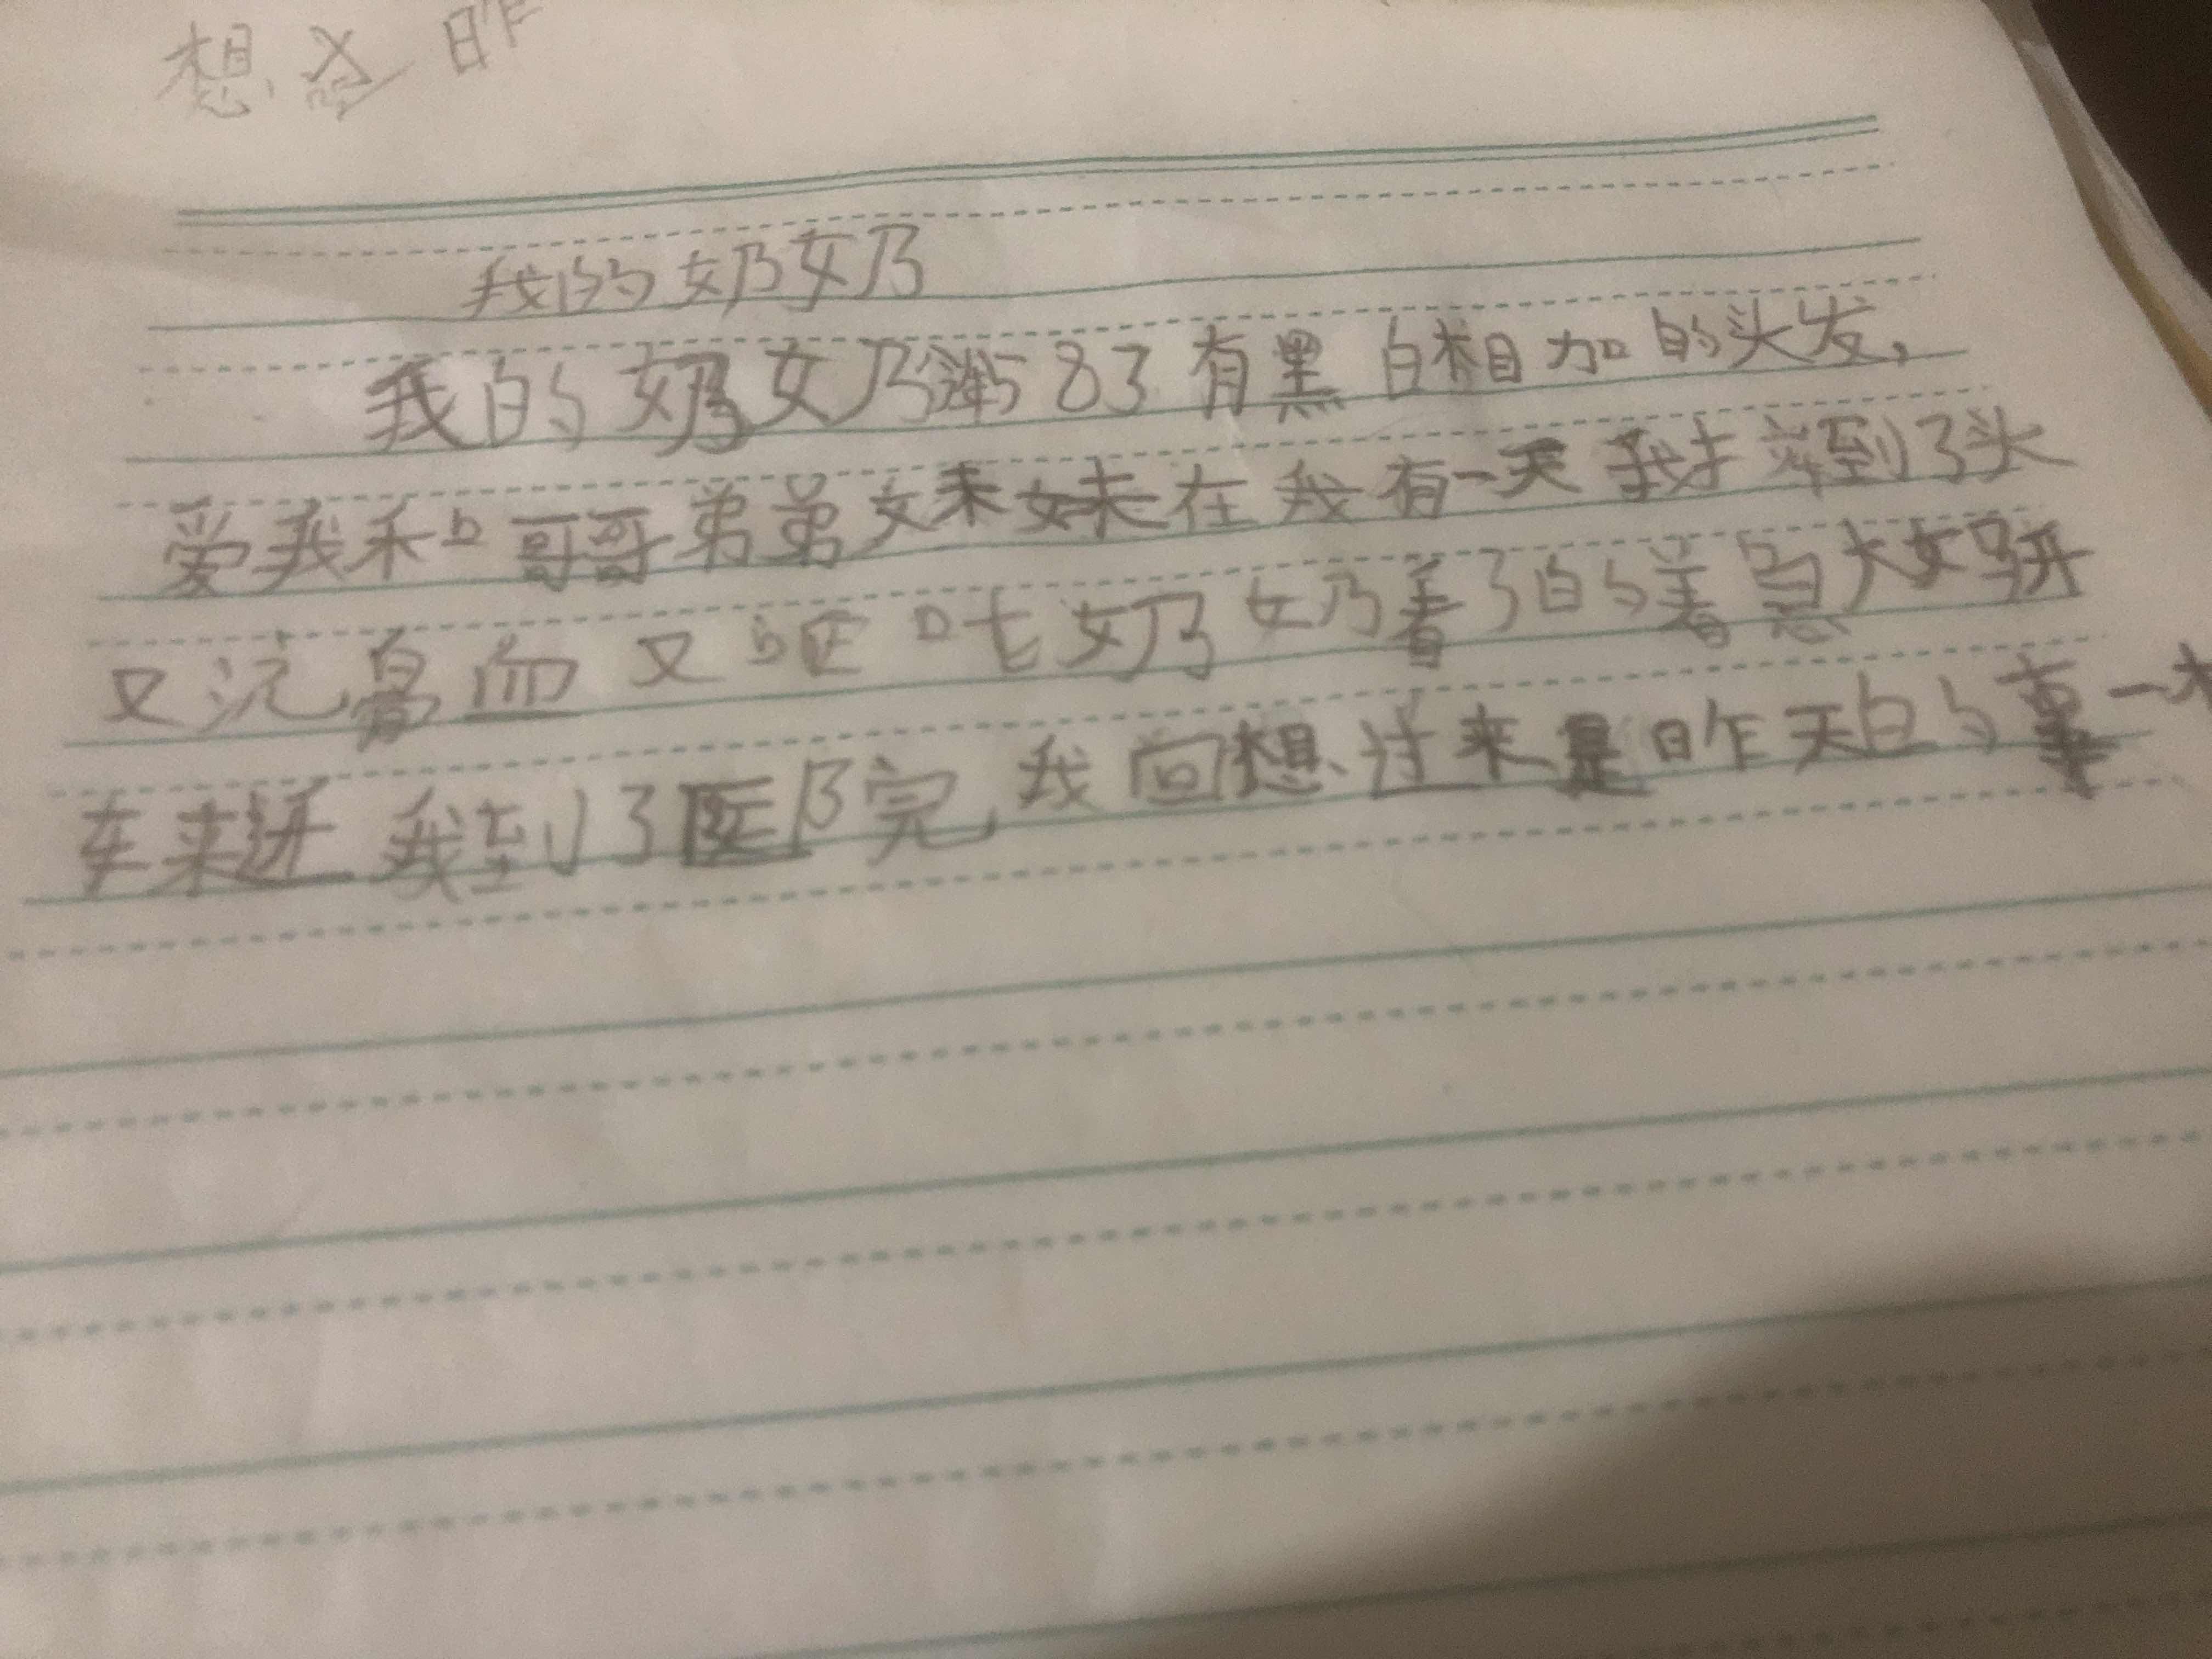 想 昨
我的奶奶
我的奶奶 83 有黑白相加的头发,
爱我和哥哥弟弟妹妹在我有一天我 到了头
又流鼻血又呕吐奶奶着了的着急
车来送我到了医院,我回想过来是昨天的事一